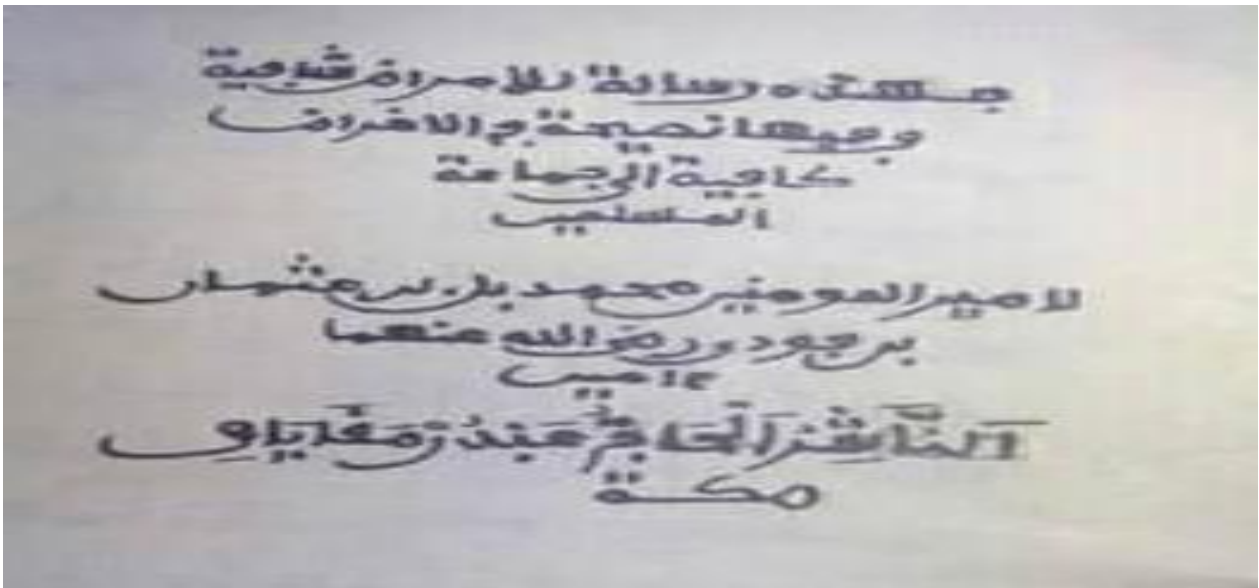 فهذه رسالة للامراض شافية
وفيها نصيحة في الاغراض
كافية الى جماعة
المسلمين
لامير المومنين محمد بل بن عثمان
بن فودي رضي الله عنهما
ءامين
اَلنَّاشِرُ اَلْحَاج عَبْدُ
مكة